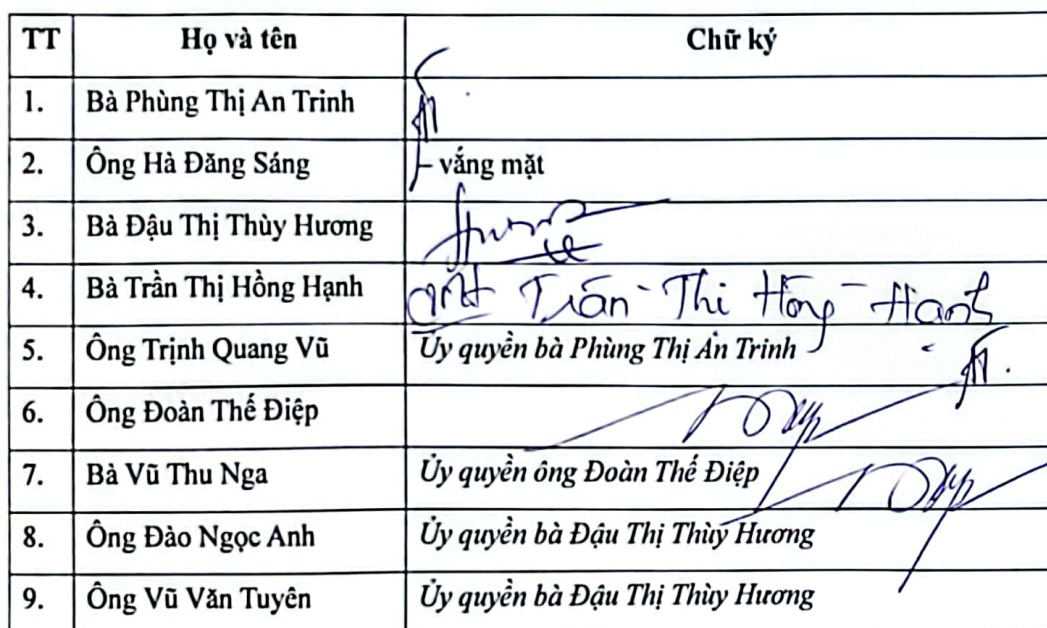 TT Họ và tên Chữ ký
1. Bà Phùng Thị An Trinh
2. Ông Hà Đăng Sáng - vắng mặt
3. Bà Đậu Thị Thùy Hương
4. Bà Trần Thị Hồng Hạnh Trần Thị Hồng Hạnh
5. Ông Trịnh Quang Vũ Ủy quyền bà Phùng Thị An Trinh
6. Ông Đoàn Thế Điệp
7. Bà Vũ Thu Nga Ủy quyền ông Đoàn Thế Điệp
8. Ông Đào Ngọc Anh Ủy quyền bà Đậu Thị Thùy Hương
9. Ông Vũ Văn Tuyên Ủy quyền bà Đậu Thị Thùy Hương